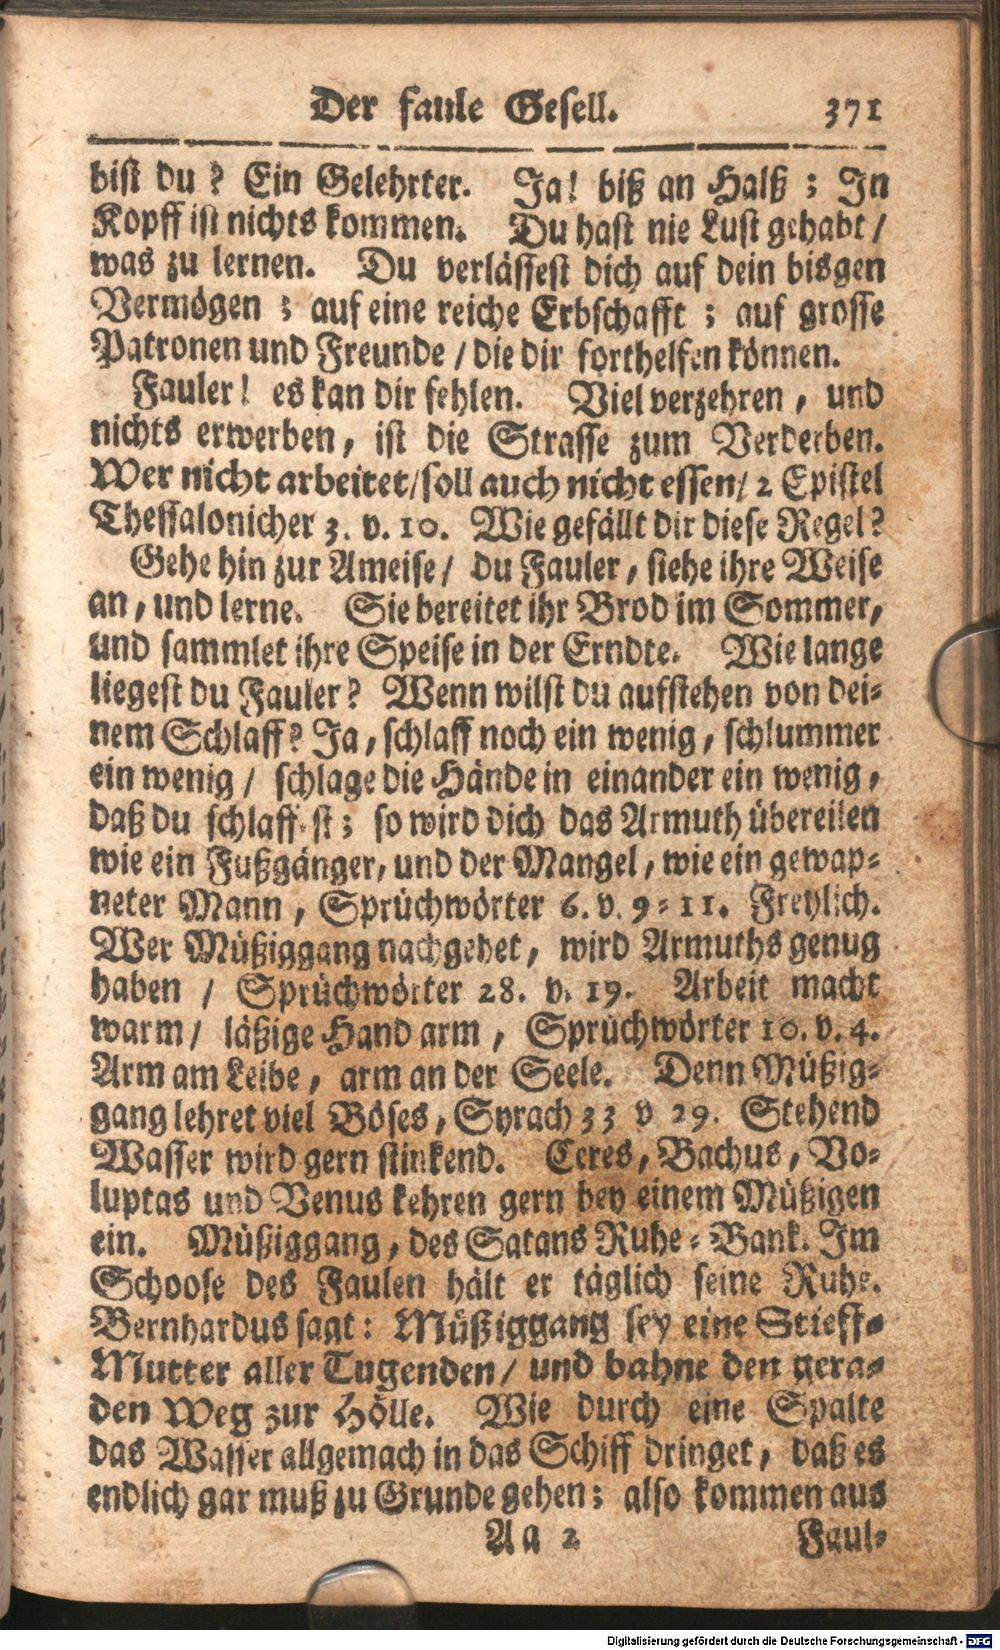 Der faule Gesell. 371
bist du? Ein Gelehrter. Ja! biß an Halß; In
Kopff ist nichts kommen. Du hast nie Lust gehabt /
was zu lernen. Du verlässest dich auf dein bisgen
Vermögen; auf eine reiche Erbschafft; auf grosse
Patronen und Freunde / die dir forthelfen können.
Fauler! es kan dir fehlen. Viel verzehren, und
nichts erwerben, ist die Strasse zum Verderben.
Wer nicht arbeitet/ soll auch nicht essen/ 2 Epistel
Thessalonicher 3. v. 10. Wie gefällt dir diese Regel?
Gehe hin zur Ameise/ du Fauler, siehe ihre Weise
an, und lerne. Sie bereitet ihr Brod im Sommer,
und sammlet ihre Speise in der Erndte. Wie lange
liegest du Fauler? Wenn wilst du aufstehen von dei-
nem Schlaff? Ja, schlaff noch ein wenig, schlummer
ein wenig/ schlage die Hände in einander ein wenig,
daß du schlaffest; so wird dich das Armuth übereilen
wie ein Fußgänger, und der Mangel, wie ein gewap-
neter Mann, Sprüchwörter 6. v. 9-11. Freylich.
Wer Müßiggang nachgehet, wird Armuths genug
haben / Sprüchwörter 28. v. 19. Arbeit macht
warm/ läßige Hand arm, Sprüchwörter 10. v. 4.
Arm am Leibe, arm an der Seele. Denn Müßig-
gang lehret viel Böses, Syrach 33 v 29. Stehend
Wasser wird gern stinkend. Ceres, Bachus, Vo-
luptas und Venus kehren gern bey einem Müßigen
ein. Müßiggang, des Satans Ruhe-Bank. Im
Schoose des Faulen hält er täglich seine Ruhe.
Bernhardus sagt: Müßiggang sey eine Stieff-
Mutter aller Tugenden/ und bahne den gera-
den Weg zur Hölle. Wie durch eine Spalte
das Wasser allgemach in das Schiff dringet, daß es
endlich gar muß zu Grunde gehen; also kommen aus
Aa 2 Faul-
Digitalisierung gefördert durch die Deutsche Forschungsgemeinschaft - DFG